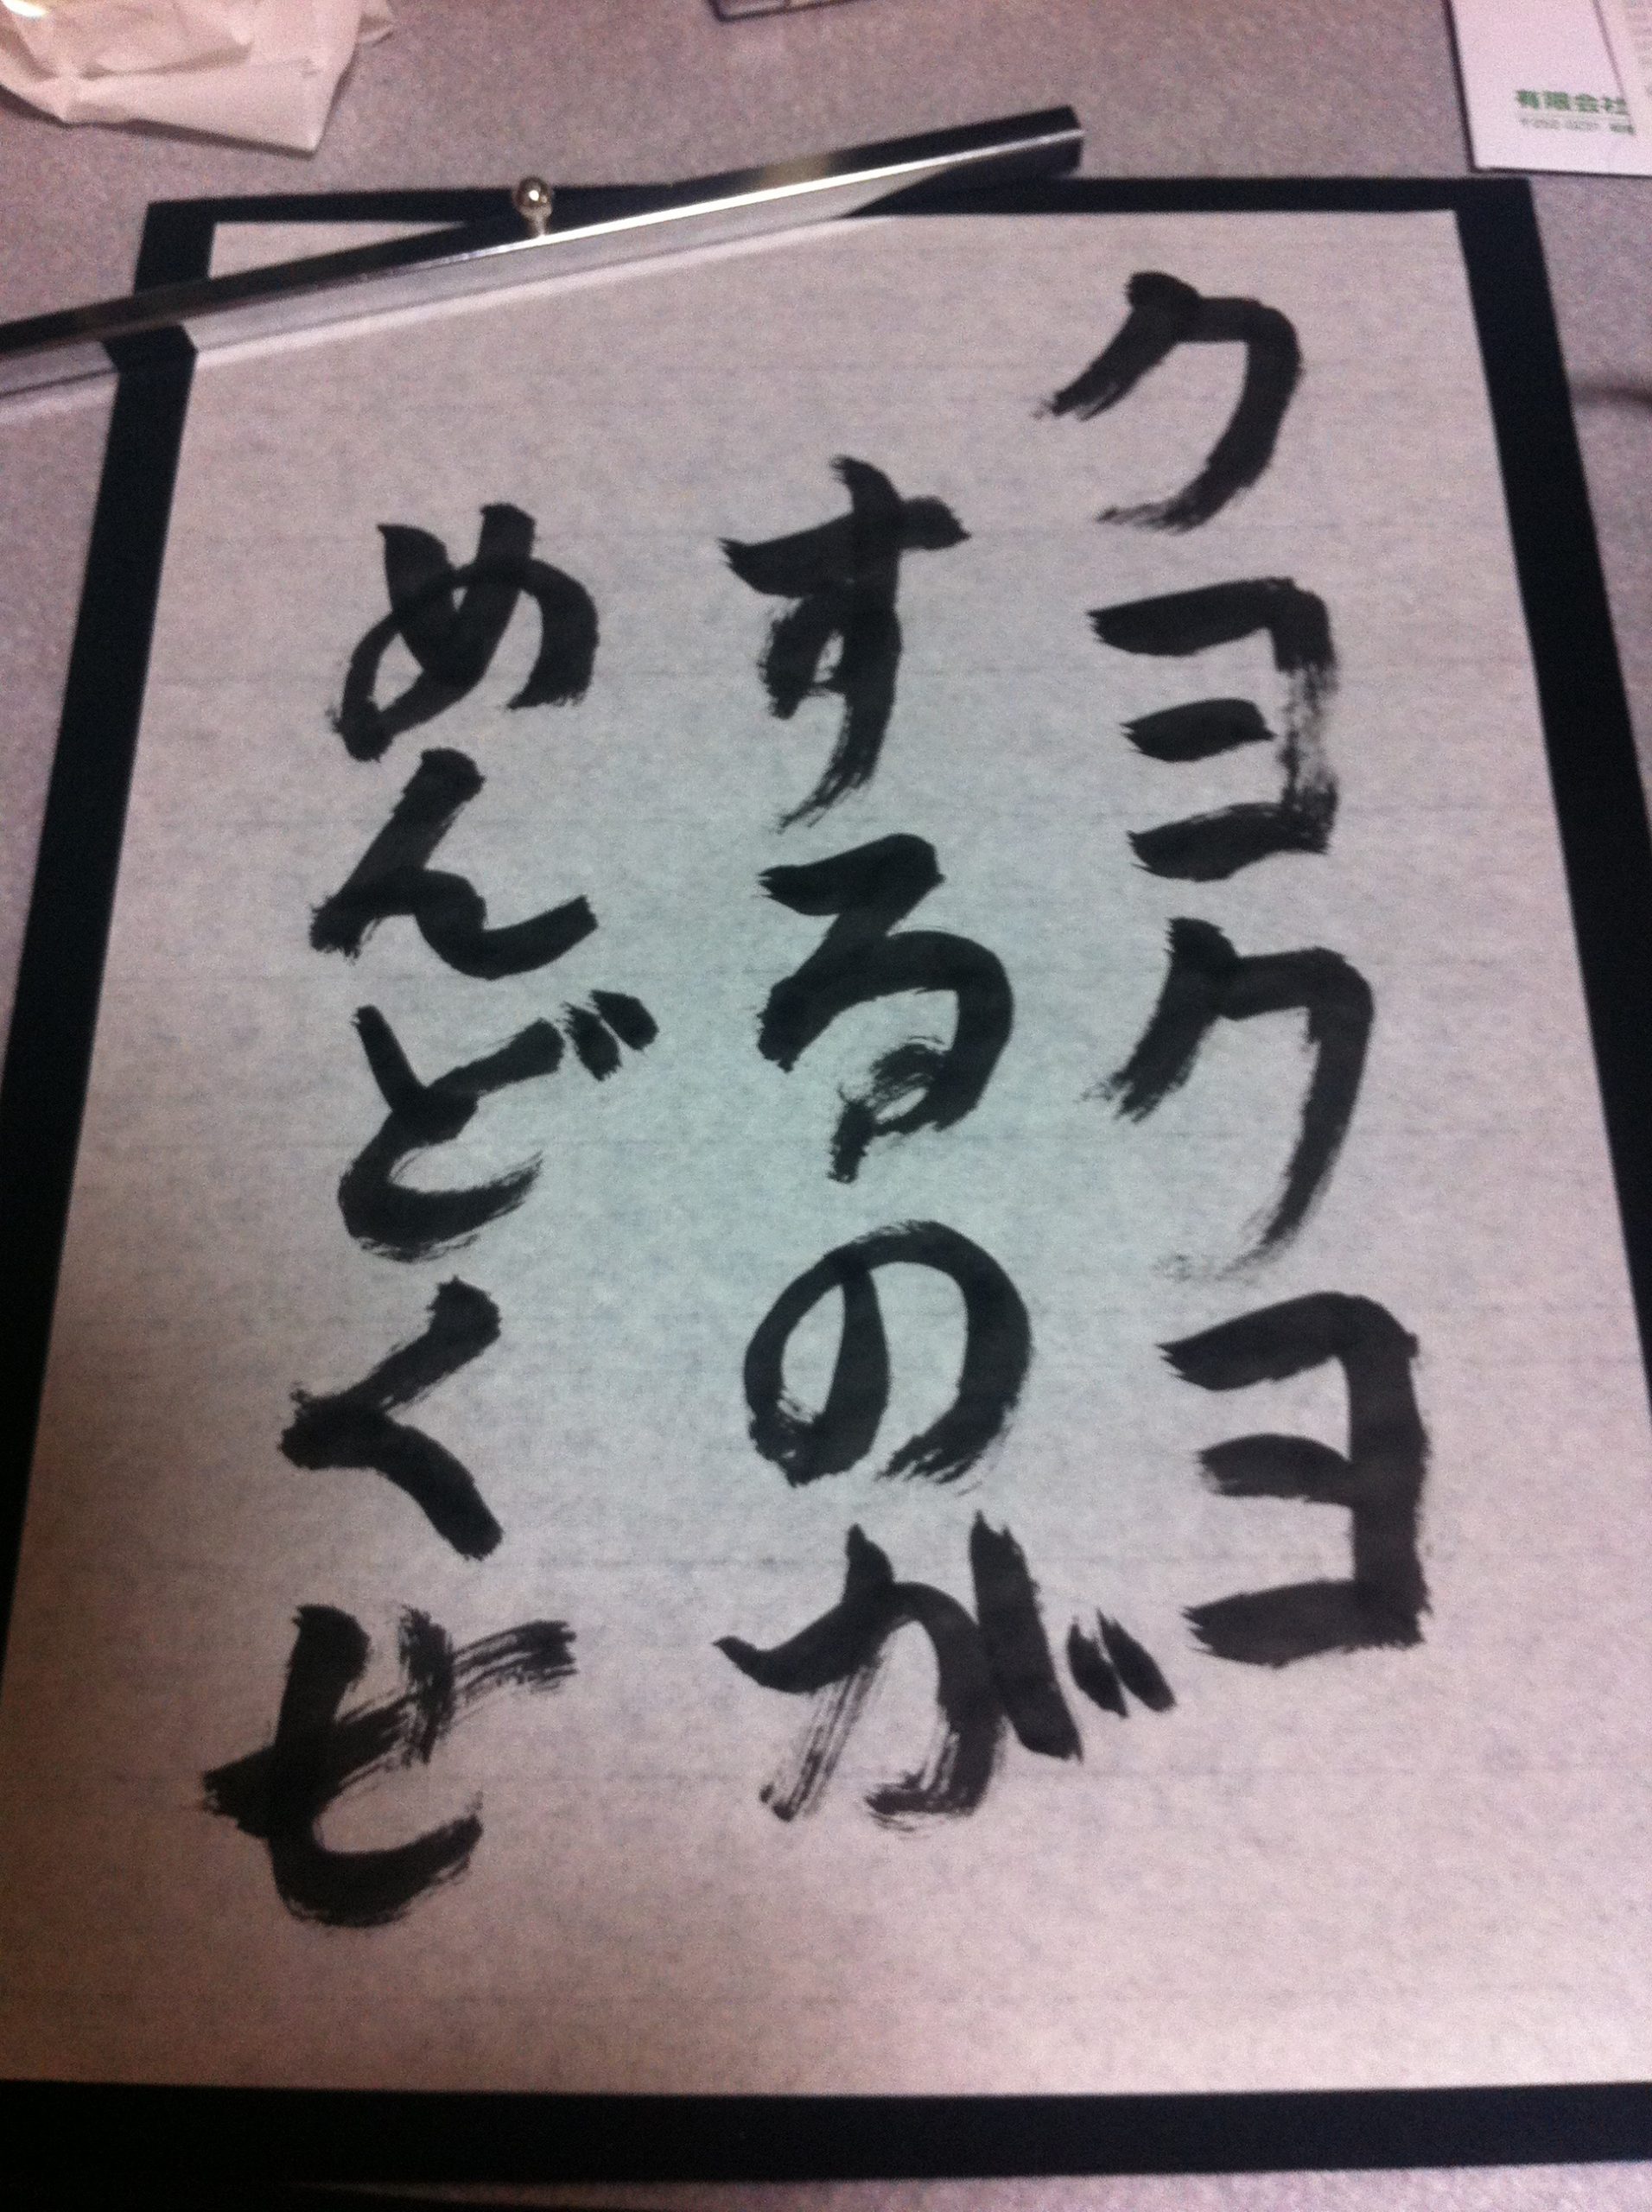 クヨクヨ
するのが
めんどくせ
有限会社